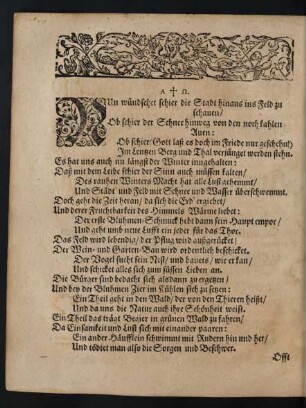 A † Ω.
NUn wündschet schier die Stadt hinaus ins Feld zu
schauen/
Ob schier der Schnee hinweg von den noch kahlen
Auen:
Ob schier (Gott laß es doch im Friede nur geschehn!)
Im Lentzen Berg und Thal verjünget werden stehn.
Es hat uns auch nu längst der Winter inngehalten:
Daß mit dem Leibe schier der Sinn auch müssen kalten/
Des rauhen Winters Macht hat alle Lust gehemmt/
Und Städt und Feld mit Schnee und Wasser überschwemmt.
Doch geht die Zeit heran/ da sich die Erd ergiebet/
Und derer Fruchtbarkeit des Himmels Wärme liebet:
Der erste Bluhmen-Schmuck hebt dann sein Haupt empor/
Und geht umb neue Lufft ein jeder für das Thor.
Das Feld wird lebendig/ der Pflug wird ausgerücket/
Der Wein- und Garten-Bau wird ordentlich beschicket.
Der Vogel sucht sein Nest/ und bauets/ wie er kan/
Und schicket alles sich zum süssen Lieben an.
Die Bürger sind bedacht sich alsdann zu ergetzen/
Und bey der Bluhmen Zier im Kühlen sich zu setzen:
Ein Theil geht in den Wald/ der von den Thieren heist/
Und da uns die Natur auch ihre Schönheit weist.
Ein Theil das trägt Begier in grünen Wald zu fahren/
Da Einsamkeit und Lust sich mit einander paaren:
Ein ander Häufflein schwimmt mit Rudern hin und her/
Und tödtet man also die Sorgen und Beschwer.
Offt